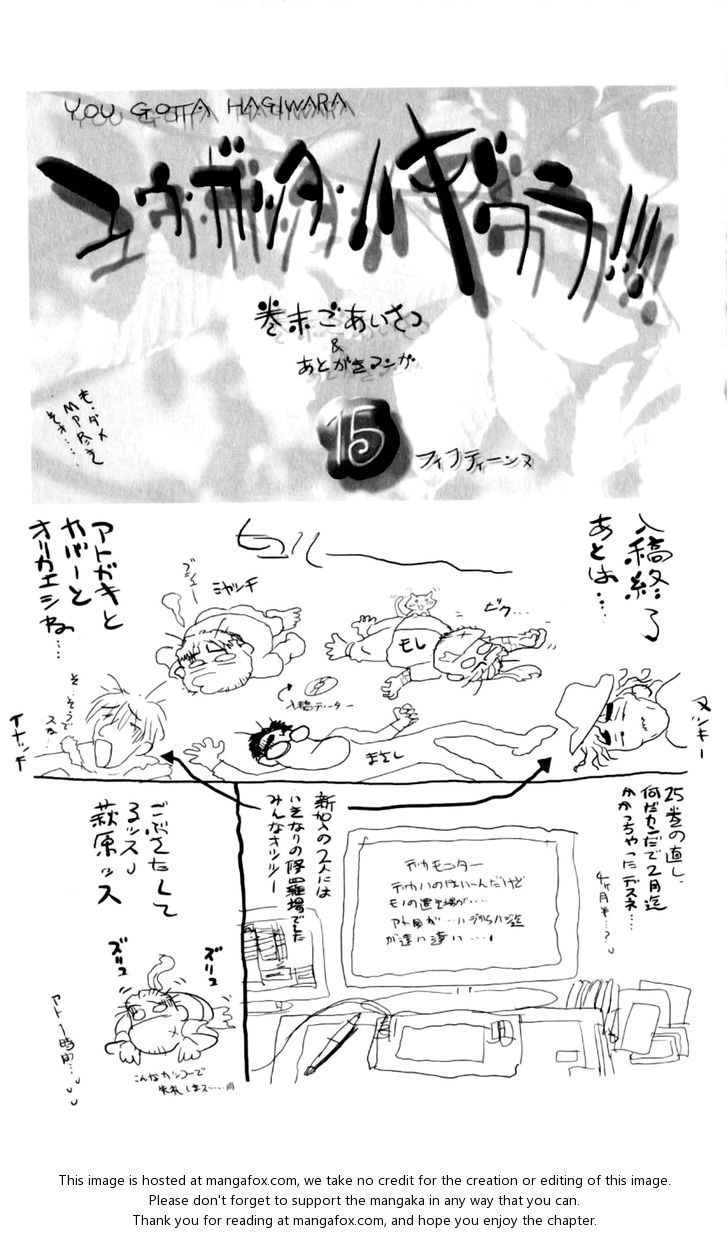 YOU GOTTA HAGIWARA
ユウ・ガッタ・ハギワラ!!!
巻末ごあいさつ
&
あとがきマンガ
15
フィフティーンヌ
も・ダメ
入稿終了
あとは…
ビク…
もし
ミヤンチ
ブシュー
アトガキと
カバーと
オリカエシャね…
そ…そうで
スね…
イナッチ
入稿データー
まさし
ヌッキー
25巻の直し、
何だカンだで2月迄
かかっちゃったデスネ…
4ヶ月半…?
新加入の2人には
いきなりの修羅場でした
みんなオツツー
デカモニター
デカいのはいーんだけど
モノの置き場が…
アト首が…ハジからハジ迄
が遠い遠い…
ごぶさたして
るッスー
萩原ッス
ズリュ
ズリュ
こんなカッコーで
失礼しまス……
アト1時間…
This image is hosted at mangafox.com, we take no credit for the creation or editing of this image.
Please don't forget to support the mangaka in any way that you can.
Thank you for reading at mangafox.com, and hope you enjoy the chapter.